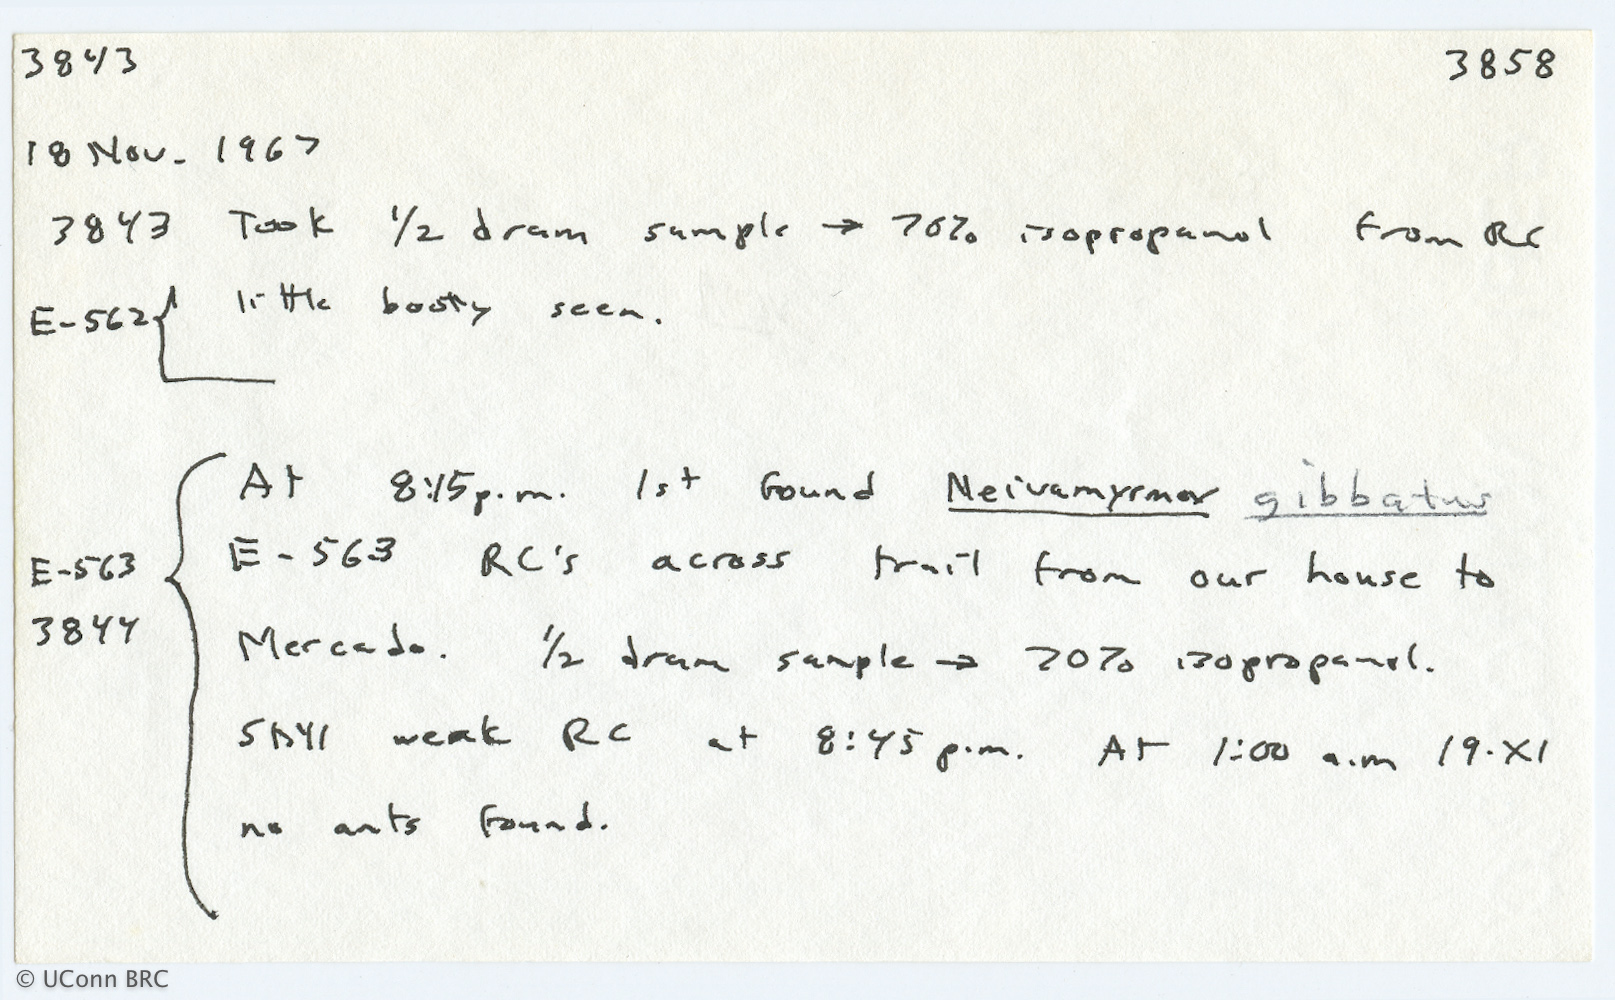 3843 3858
18 Nov. 1967
3843 Took 1/2 dram sample → 70% isopropanol from RC
E-562 { little booty seen.
At 8:15 p.m. 1st found Neivamyrmex gibbatus
E-563 RC's across trail from our house to
E-563
3844
Mercado. 1/2 dram sample → 70% isopropanol.
Still weak RC at 8:45 p.m. At 1:00 a.m 19.XI
no ants found.
© UConn BRC